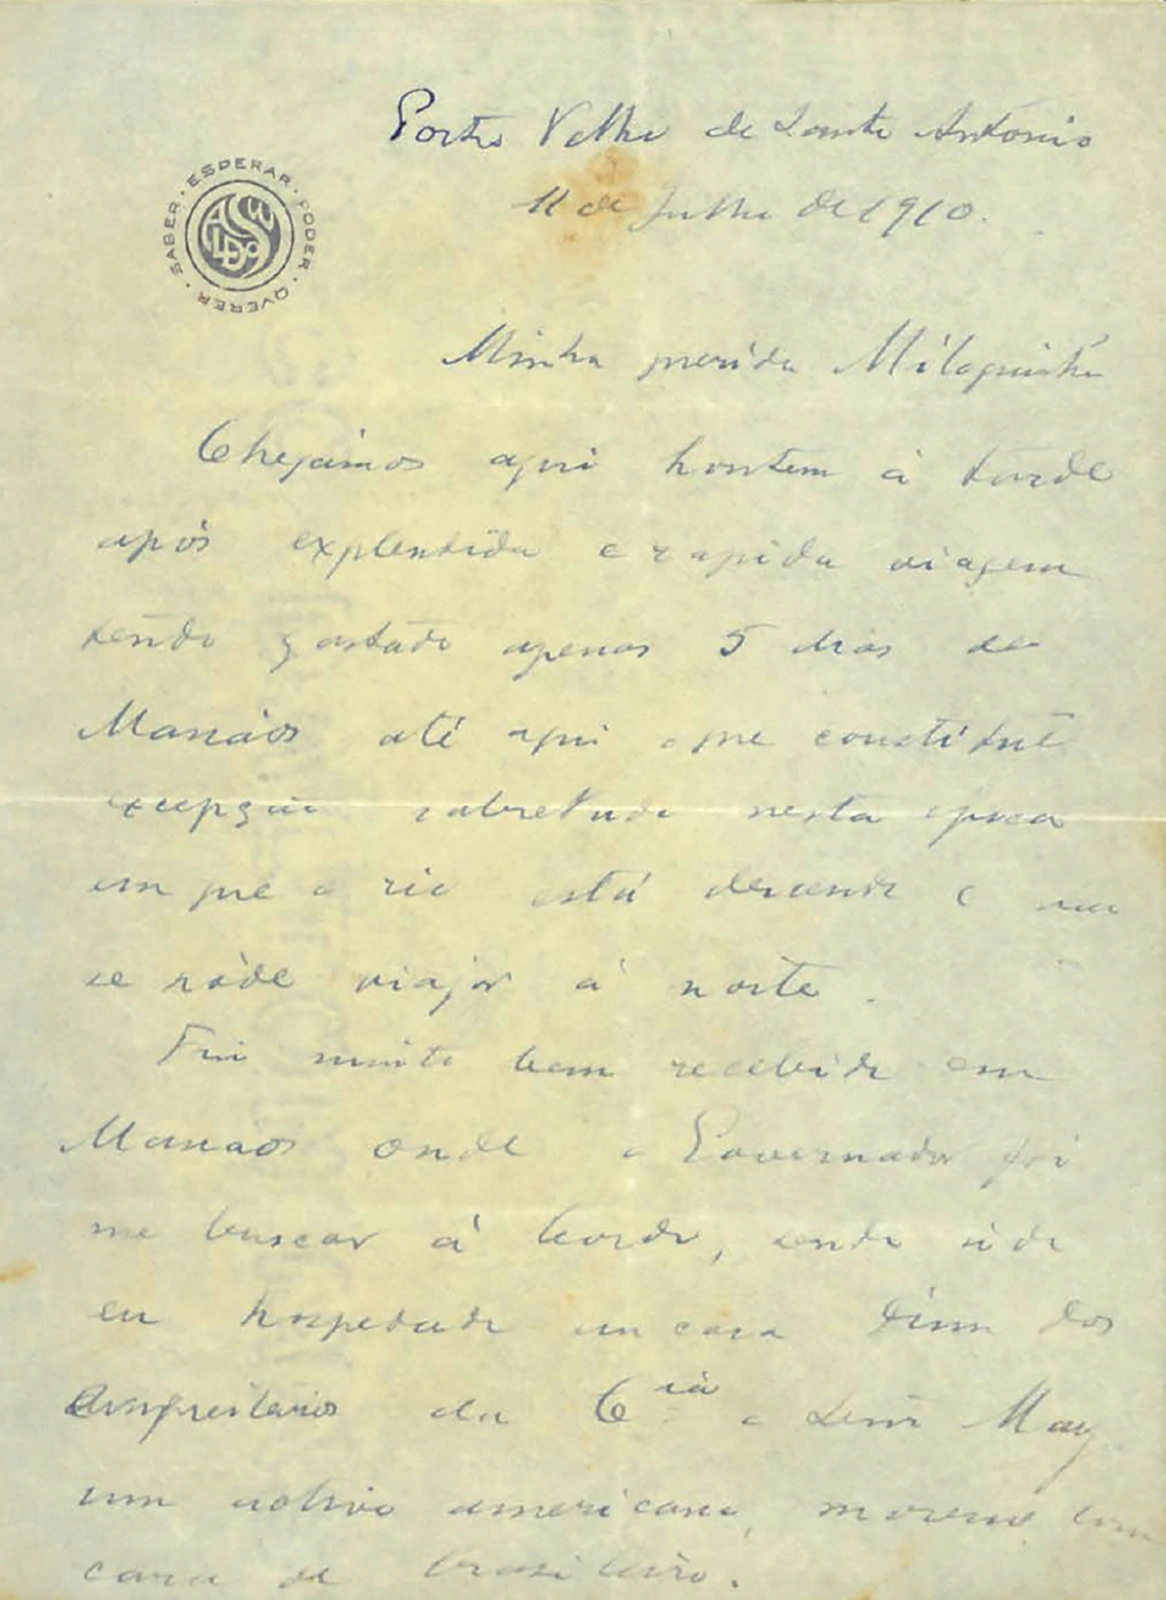 Porto Velho de Santo Antonio
11 de Julho de 1910.
SABER · ESPERAR · PODER · QVERER ·
OSWALDO
Minha querida Miloquinha
Chegámos aqui hontem á tarde
após explendida e rapida viagem
tendo gastado apenas 5 dias de
Manáos até aqui o que constitue
excepção sobretudo nesta epoca
em que o rio está descendo e não
se póde viajar á noite.
Fui muito bem recebido em
Manaos onde o Governador foi
me buscar á bordo, tendo sido
eu hospedado em casa d'um dos
Empreiteiros da Cia o Senr May
um activo americano, moreno com
cara de brasileiro.